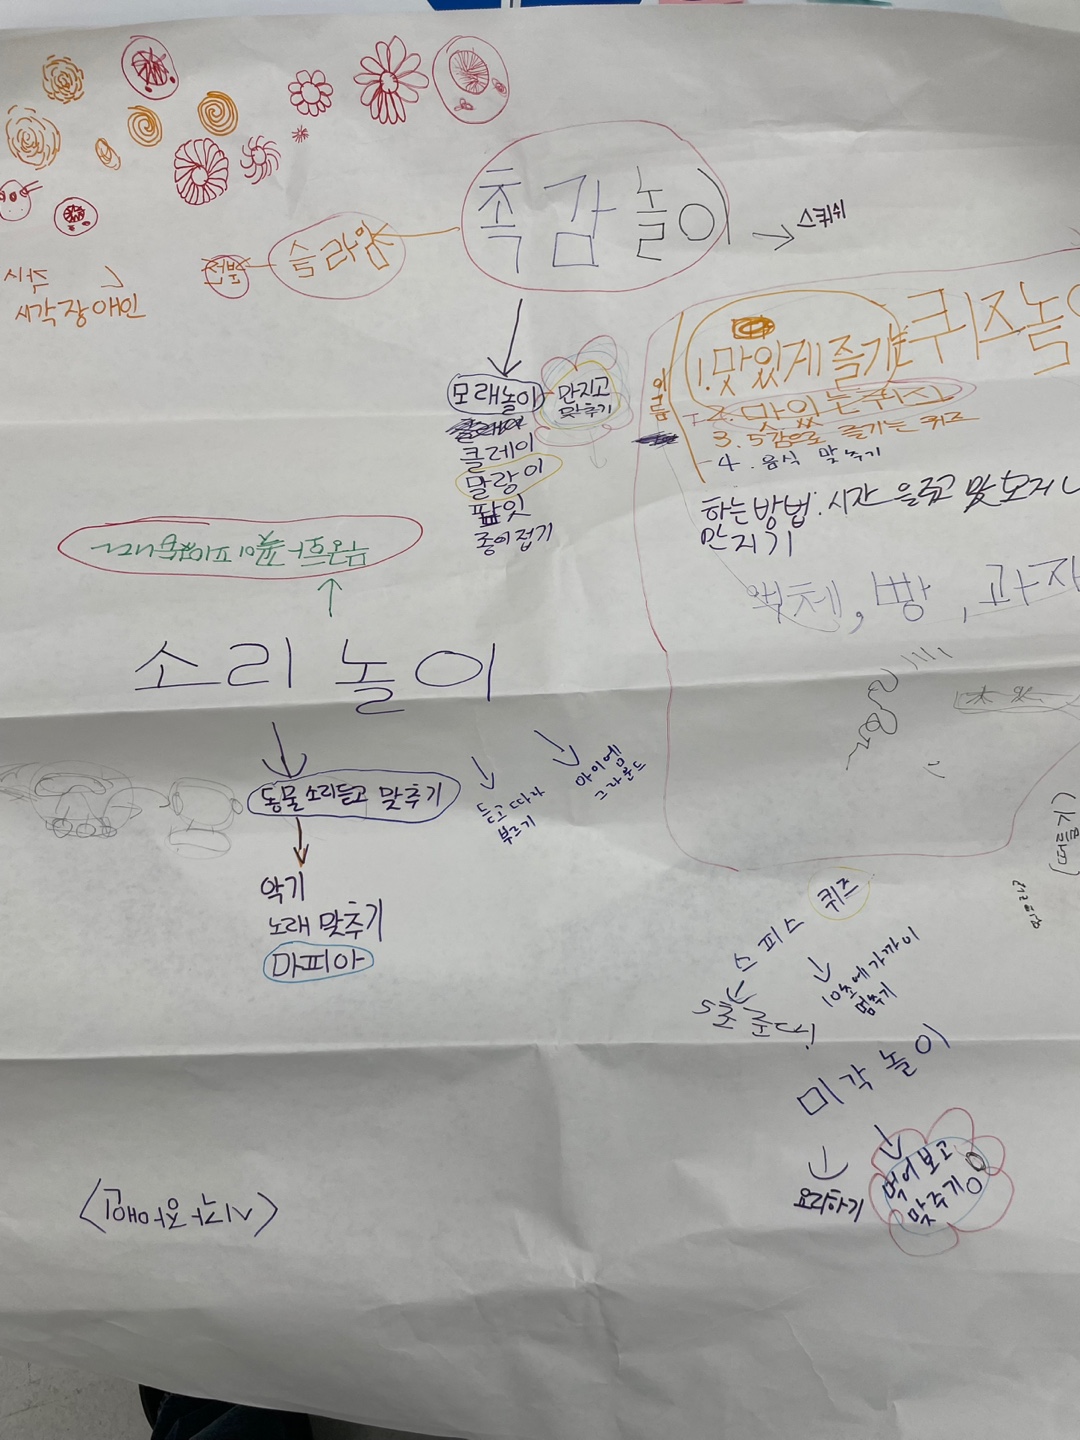 촉감놀이
스퀴쉬
슬라임
시각장애인
모래놀이
만지고
맞추기
클레이
말랑이
팝잇
종이접기
퀴즈놀이
1. 맛있게 즐기는
2. 맛있는 퀴즈
3. 5감으로 즐기는 퀴즈
4. 음식 맞추기
하는방법: 시간
만지기
빵, 과자
소리 놀이
동물 소리듣고 맞추기
듣고 따라
부르기
아이엠
그라운드
악기
노래 맞추기
마피아
스피스 퀴즈
5초준다!
10초에 가까이
멈추기
미각 놀이
요리하기
먹어보고
맞추기
<시각장애인>